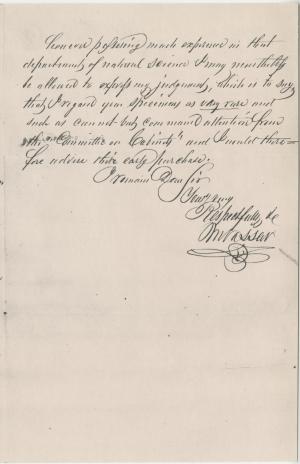 however professing much experience in that
department of natural science I may nevertheless
be allowed to express my judgment, which is to say,
that I regard your specimens as very rare and
such as cannot but command attention from
the "Committee on Cabinets" and I would there=
fore advise their early purchase,
I remain Dear Sir
Very
Respectfully &c
M Vassar